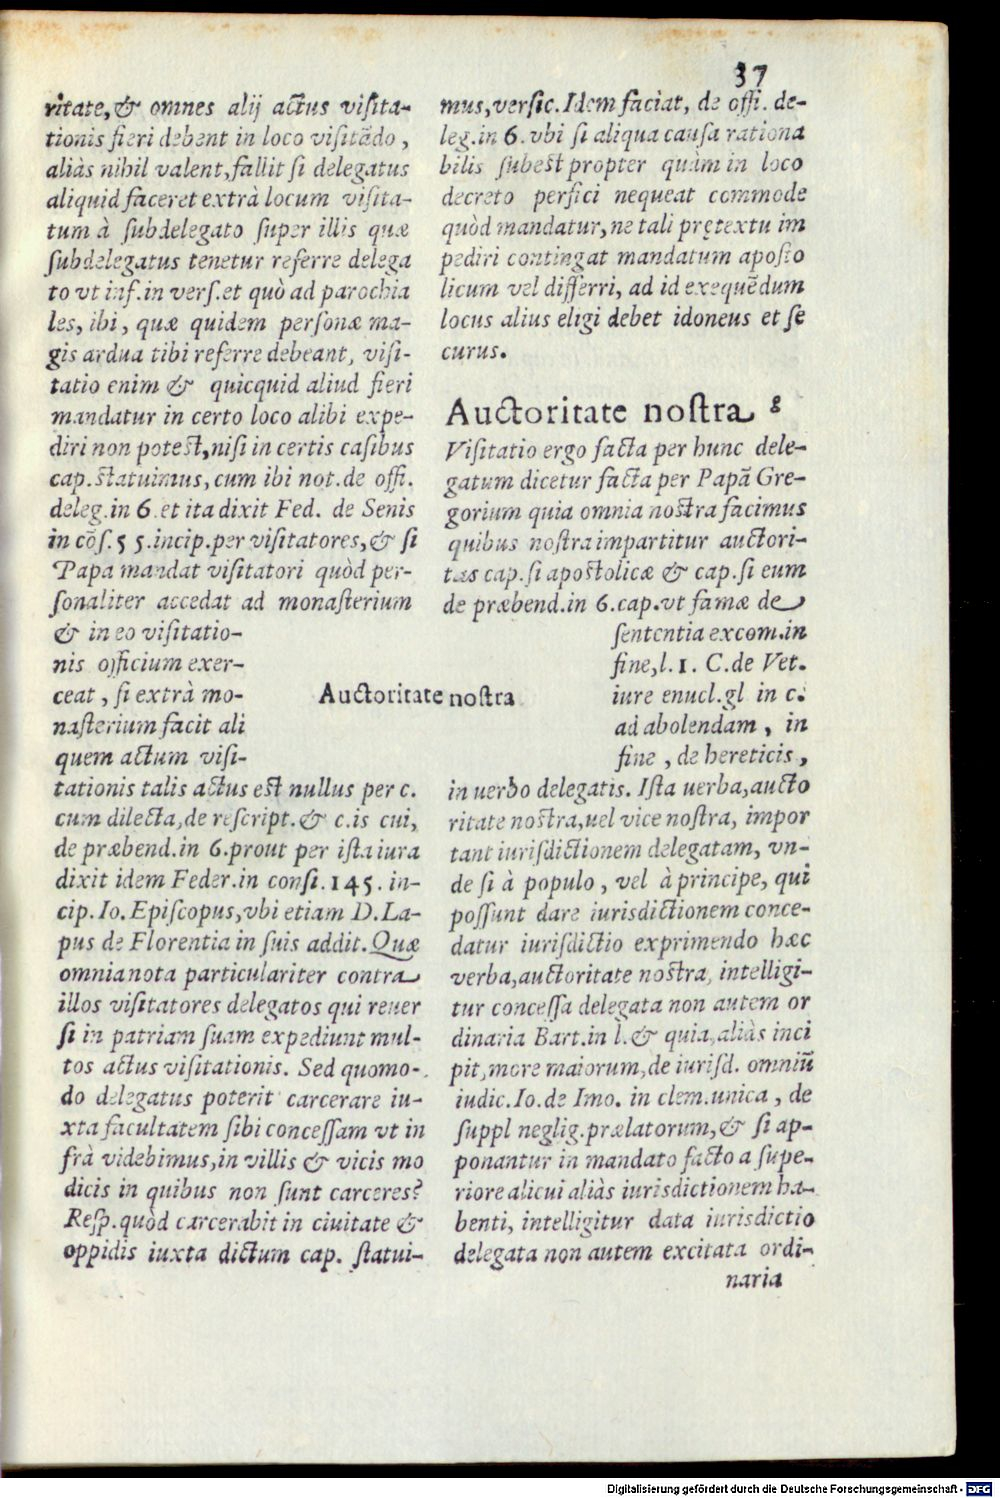 37
ritate,& omnes alij actus visita-
tionis fieri debent in loco visitēdo,
aliàs nihil valent,fallit si delegatus
aliquid faceret extrà locum visita-
tum à subdelegato super illis quæ
subdelegatus tenetur referre delega
to vt inf.in vers.et quò ad parochia
les, ibi, quæ quidem personæ ma-
gis ardua tibi referre debeant, visi-
tatio enim & quicquid aliud fieri
mandatur in certo loco alibi expe-
diri non potest,nisi in certis casibus
cap.statuimus,cum ibi not.de offi.
deleg.in 6.et ita dixit Fed. de Senis
in cōs.55.incip.per visitatores,& si
Papa mandat visitatori quòd per-
sonaliter accedat ad monasterium
& in eo visitatio-
nis officium exer-
ceat, si extrà mo-
nasterium facit ali
quem actum visi-
tationis talis actus est nullus per c.
cum dilecta,de rescript.& c.is cui,
de præbend.in 6.prout per ista iura
dixit idem Feder.in consi.145. in-
cip.Io.Episcopus,vbi etiam D.La-
pus de Florentia in suis addit.Quæ
omnia nota particulariter contra
illos visitatores delegatos qui reuer
si in patriam suam expediunt mul-
tos actus visitationis. Sed quomo-
do delegatus poterit carcerare iu-
xta facultatem sibi concessam vt in
frà videbimus,in villis & vicis mo
dicis in quibus non sunt carceres?
Resp.quòd carcerabit in ciuitate &
oppidis iuxta dictum cap. statui-
Auctoritate nostra
mus,versic.Idem faciat, de offi. de-
leg.in 6.vbi si aliqua causa rationa
bilis subest propter quàm in loco
decreto perfici nequeat commode
quòd mandatur,ne tali prętextu im
pediri contingat mandatum aposto
licum vel differri, ad id exequēdum
locus alius eligi debet idoneus et se
curus.
Auctoritate nostra g
Visitatio ergo facta per hunc dele-
gatum dicetur facta per Papā Gre-
gorium quia omnia nostra facimus
quibus nostra impartitur auctori-
tas cap.si apostolicæ & cap.si eum
de præbend.in 6.cap.vt famæ de
sententia excom.in
fine,l.1. C.de Vet.
iure enucl.gl in c.
ad abolendam, in
fine, de hereticis,
in uerbo delegatis. Ista uerba,aucto
ritate nostra,uel vice nostra, impor
tant iurisdictionem delegatam, vn-
de si à populo, vel à principe, qui
possunt dare iurisdictionem conce-
datur iurisdictio exprimendo hæc
verba,auctoritate nostra, intelligi-
tur concessa delegata non autem or
dinaria Bart.in l.& quia,aliàs inci
pit,more maiorum,de iurisd. omniū
iudic.Io.de Imo. in clem.unica, de
suppl neglig.prælatorum,& si ap-
ponantur in mandato facto a supe-
riore alicui aliàs iurisdictionem ha-
benti, intelligitur data iurisdictio
delegata non autem excitata ordi-
naria
Digitalisierung gefördert durch die Deutsche Forschungsgemeinschaft - DFG